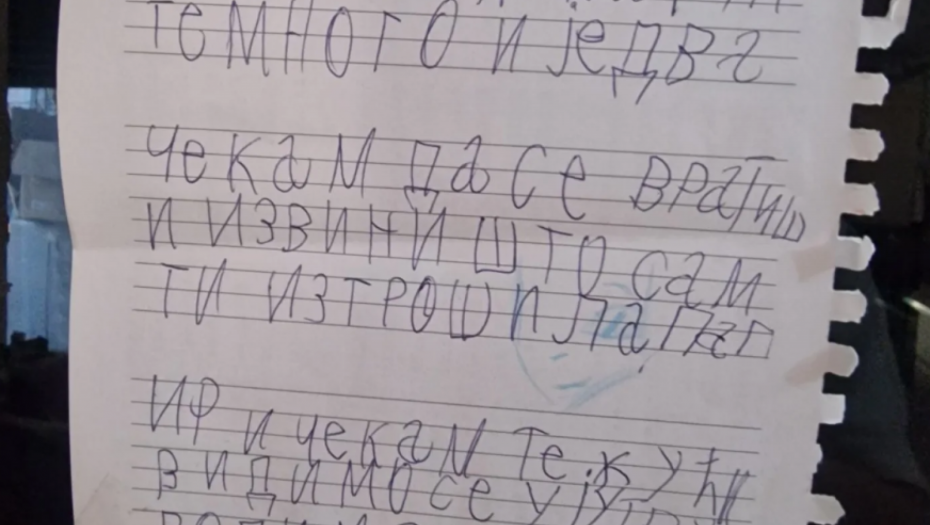 ТЕ МНОГО И ЈЕДВа
ЧЕКАМ ДА СЕ ВРАТИШ
И ИЗВИНИ ШТО САМ
ТИ ИЗТРОШИЛА ПАП
ИР И ЧЕКАМ ТЕ.КУЋИ
ВИДИМО СЕ УЈУТРУ